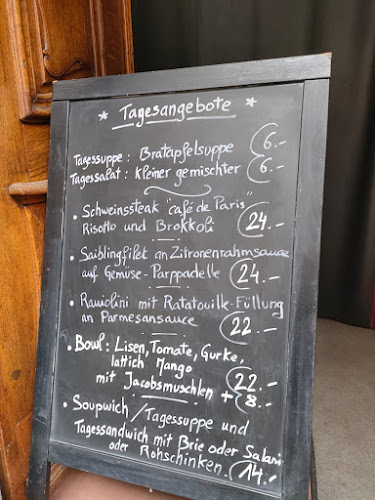 * Tagesangebote *
Tagessuppe: Bratapfelsuppe 6.-
Tagessalat: kleiner gemischter 6.-
• Schweinssteak "café de Paris"
Risotto und Brokkoli 24.-
• Saiblingfilet an Zitronenrahmsauce
auf Gemüse-Parppadelle 24.-
• Raviolini mit Ratatouille-Füllung
an Parmesansauce 22.-
• Bowl: Lisen, Tomate, Gurke,
lattich Mango 22.-
mit Jacobsmuschlen + 8.-
• Soupwich / Tagessuppe und
Tagessandwich mit Brie oder Salami
oder Rohschinken. 14.-